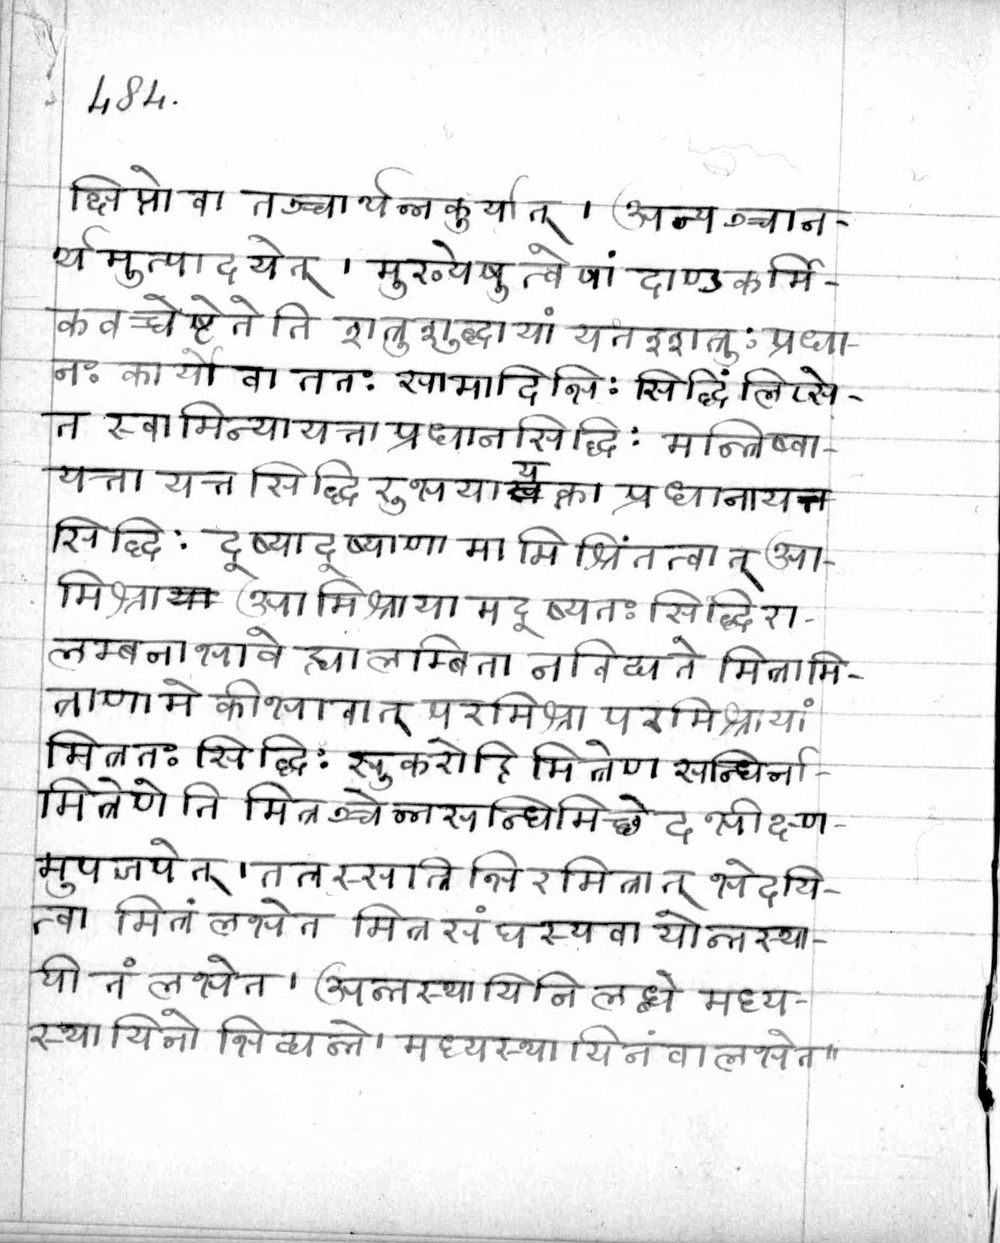 484.
क्षिप्तो वा तञ्चार्थन्नकुर्यात् । अन्यञ्चान-
र्थमुत्पादयेत् । मुख्येषुत्वेषां दाण्डकर्मि-
कवच्चेष्टेतेति शत्रुशुद्धायां यतश्शत्रुः प्रधा-
नः कार्यो वा ततः सामादिभिः सिद्धिं लिप्से-
त स्वामिन्यायत्ता प्रधानसिद्धिः मन्त्रिष्वा-
यत्ता यत्त सिद्धि रुभयायत्ता प्रधानायत्त
सिद्धिः दूष्यादूष्याणा मामिश्रिंतत्वात् आ-
मिश्राया आमिश्राया मदूष्यतः सिद्धिरा-
लम्बनाभावे ह्यालम्बिता नविद्यते मित्रामि-
त्राणामेकीभावात् परमिश्रा परमिश्रायां
मित्रतः सिद्धिः सुकरोहि मित्रेण सन्धिर्ना-
मित्रेणेति मित्रञ्चेन्नसन्धिमिच्छेदभीक्ष्ण-
मुपजपेत् । ततस्सात्रिभिरमित्रात् भेदयि-
त्वा मित्रं लभेत मित्रसंघस्यवा योन्तस्था-
यी तं लभेत । अन्तस्थायिनि लब्धे मध्य-
स्थायिनो भिद्यन्ते । मध्यस्थायिनं वा लभेत ॥